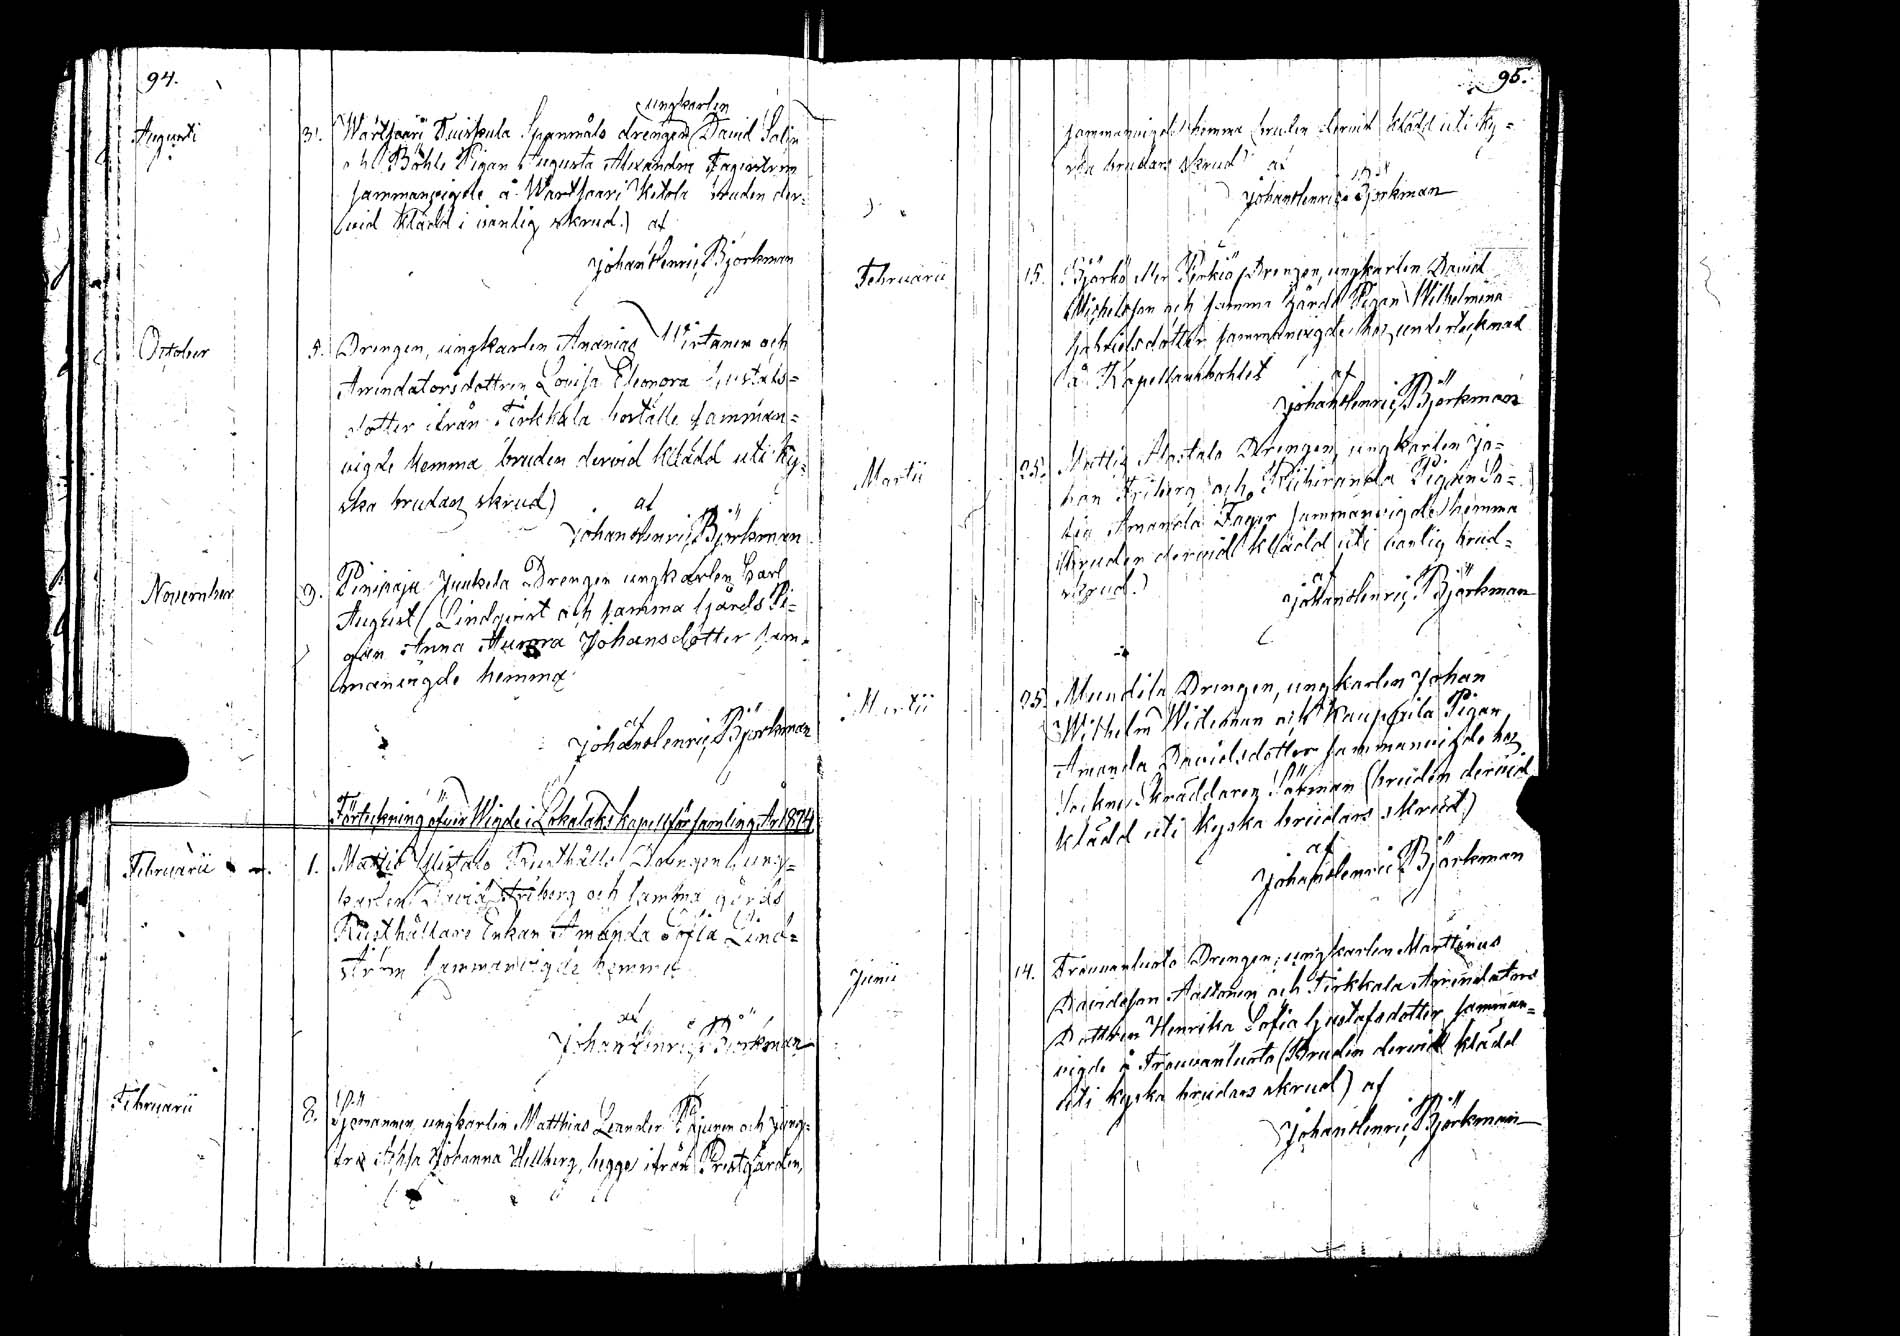 94.
ungkarlen
Augusti 31. Wartsaari Tuiskula Spanmåls drengen David Salin
och Böhle Pigan Augusta Alexandra Fagerström
sammanvigde å Wartsaari Ketola (bruden der-
vid klädd i vanlig skrud.) af
Johan Henric Björkman
October 5. Drengen, ungkarlen Ananias Wirtanen och
Arrendatorsdottren Lovisa Eleonora Gustafs-
dotter ifrån Tirkkala boställe samman-
vigde hemma (bruden dervid klädd uti ky-
ska brudars skrud) af
Johan Henric Björkman
November 9. Pinipaja Juukela Drengen ungkarlen Carl
August Lindqvist och samma Gårds Pi-
gan Anna Aurora Johansdotter sam-
manvigde hemma
af
Johan Henric Björkman
Förteckning öfver Wigde i Lokalaks kapellförsamling År 1874
Februarii 1. Mattis Alistalo Rusthålls Drengen, ung-
karlen David Friberg och samma gårds
Rusthållars Enkan Amanda Sofia Lind-
ström sammanvigde hemma
af
Johan Henric Björkman
Februarii 8. Sjömannen ungkarlen Matthias Leander Pajunen och jung-
fru Johanna Hellberg, begge ifrån Prestgården,
95.
sammanvigde hemma (bruden dervid klädd uti ky-
ska brudars skrud) af
Johan Henric Björkman
Februarii 15. Björkö eller Pirkiö Drengen, ungkarlen David
Michelsson och samma Gårds Pigan Wilhelmina
Gabrielsdotter sammanvigde hos undertecknad
å Kapellansbohlet af
Johan Henric Björkman
Martii 25. Mattis Alastalo Drengen, ungkarlen Jo-
han Friberg och Riihiranda Pigan So-
fia Amanda Fager sammanvigde hemma
(bruden dervid klädd uti vanlig brud-
skrud.) af
Johan Henric Björkman
Martii 25. Mundila Drengen, ungkarlen Johan
Wilhelm Wideman och Kauppila Pigan
Amanda Davidsdotter sammanvigde hos
Sockne Skräddaren Sökman (bruden dervid
klädd uti kyska brudars skrud)
af
Johan Henric Björkman
Junii 14. Trouvanlusto Drengen, ungkarlen Martinus
Davidsson Aaltonen och Tirkkala Arrendators
Dottren Henrika Sofia Gustafsdotter samman-
vigde å Trouvanlusto (Bruden dervid klädd
uti kyska brudars skrud) af
Johan Henric Björkman